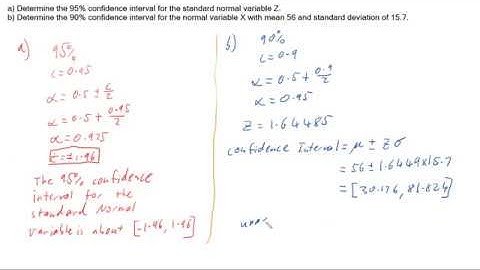 a) Determine the 95% confidence interval for the standard normal variable Z.
b) Determine the 90% confidence interval for the normal variable X with mean 56 and standard deviation of 15.7.
a)
95%
C=0.95
α = 0.5 ± C/2
α = 0.5 + 0.95/2
α = 0.975
z=±1.96
The 95% confidence
interval for the
standard Normal
variable is about [-1.96, 1.96]
b)
90%
C=0.9
α = 0.5 + 0.9/2
α = 0.95
Z = 1.64485
Confidence Interval = μ ± z σ
= 56 ± 1.6449x15.7
= [30.176, 81.824]